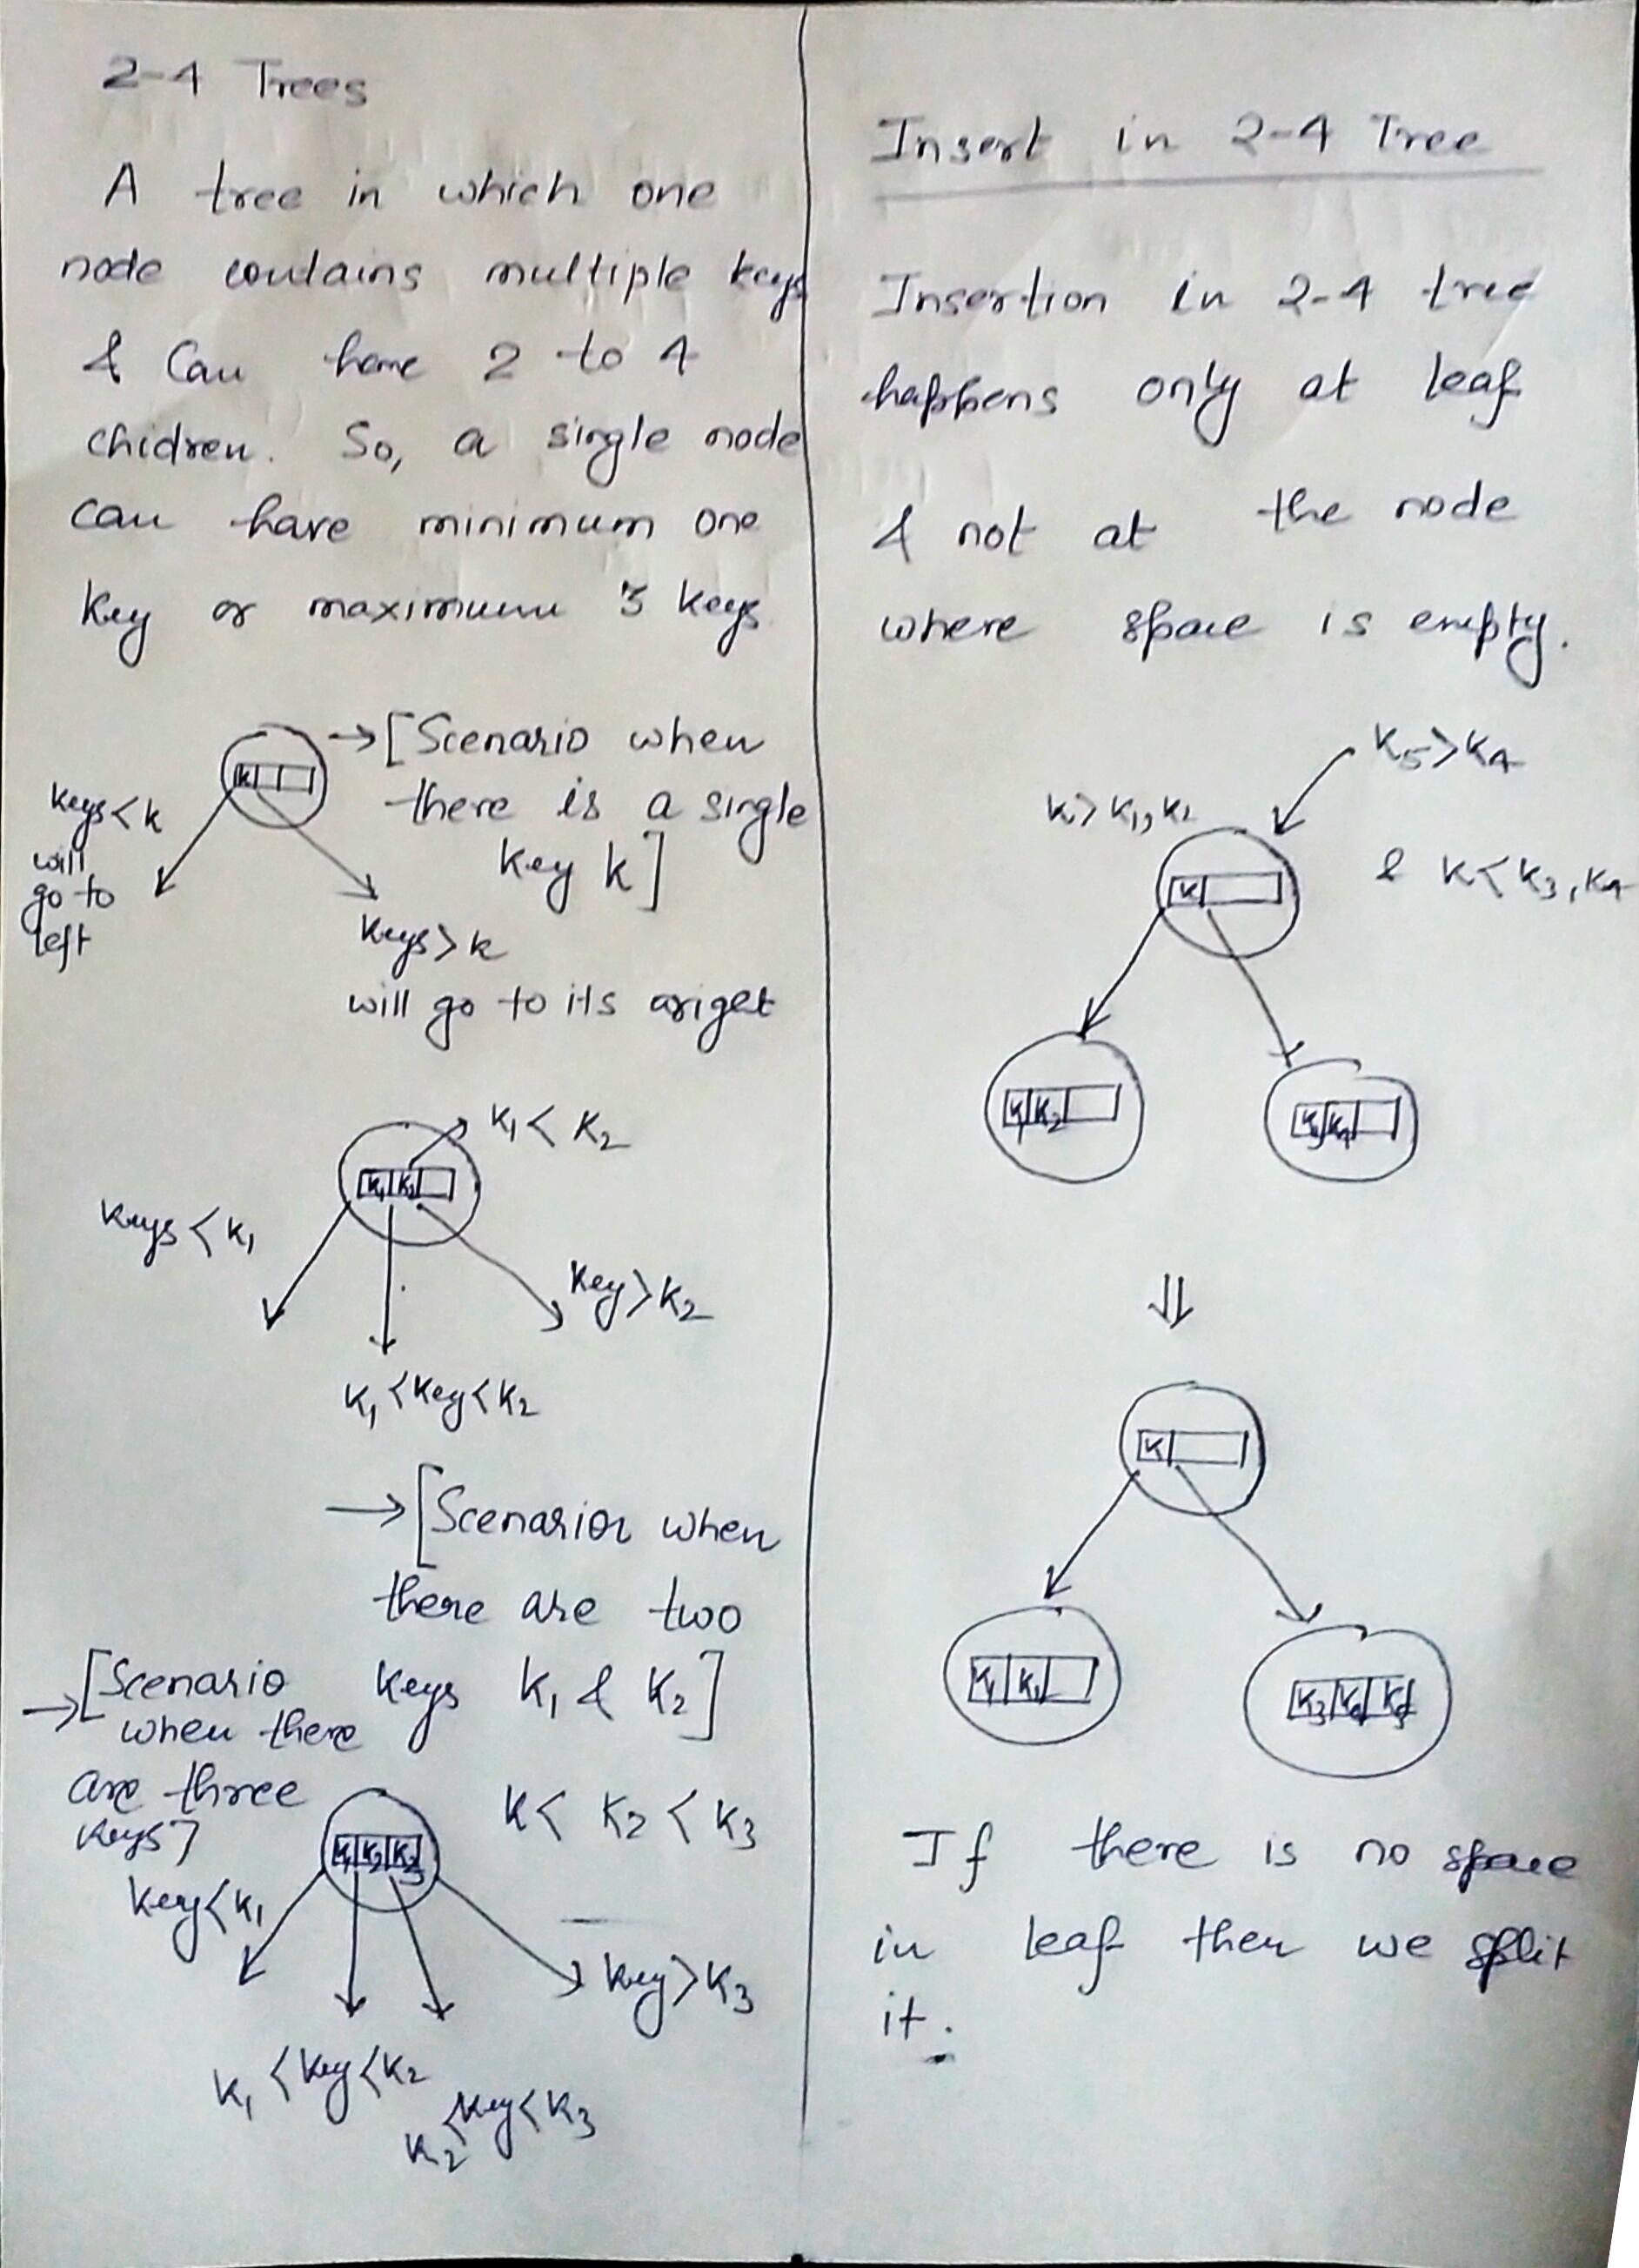 2-4 Trees
A tree in which one
node contains multiple keys
& Can have 2 to 4
chidren. So, a single node
can have minimum one
Key or maximum 3 keys
→ [Scenario when
there is a single
Key k]
k
keys < k
will
go to
left
keys > k
will go to its right
k₁ < k₂
k₁ k₂
keys < k₁
key > k₂
k₁ < key < k₂
→ [Scenarior when
there are two
keys k₁ & k₂]
→ [Scenario
when there
are three
keys]
k < k₂ < k₃
k₁ k₂ k₃
key < k₁
key > k₃
k₁ < key < k₂
k₂ < key < k₃
Insert in 2-4 Tree
Insertion in 2-4 tree
happens only at leaf
& not at the node
where space is empty.
k₅ > k₄
k > k₁, k₂
& k < k₃, k₄
k
k₁ k₂
k₃ k₄
⇓
k
k₃ k₄ k₅
If there is no space
in leaf then we split
it.